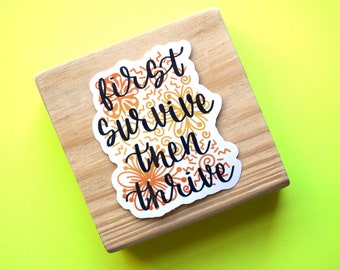 first
survive
then
thrive